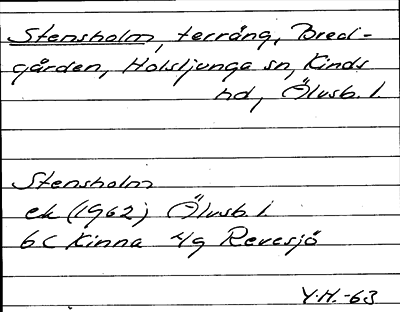 Stensholm, terräng, Bred-
gården, Holsljunga sn, Kinds
hd, Älvsb. l.
Stensholm
ek (1962) Älvsb. l.
6C Kinna 4g Revesjö
Y.H.-63